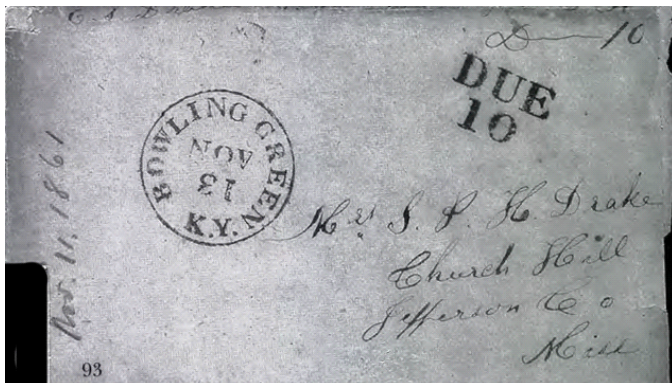 E. S. D
D 10
DUE
10
BOWLING GREEN
NOV
13
K.Y.
Nov. 11, 1861
Mrs S. P. H. Drake
Church Hill
Jefferson Co
Miss
93